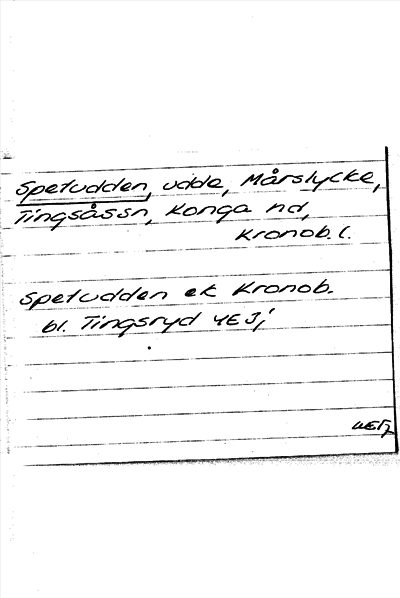 Spetudden, udde, Mårslycke,
Tingsåssn, Konga hd,
Kronob. l.
Spetudden ek Kronob.
bl. Tingsryd 4E3j